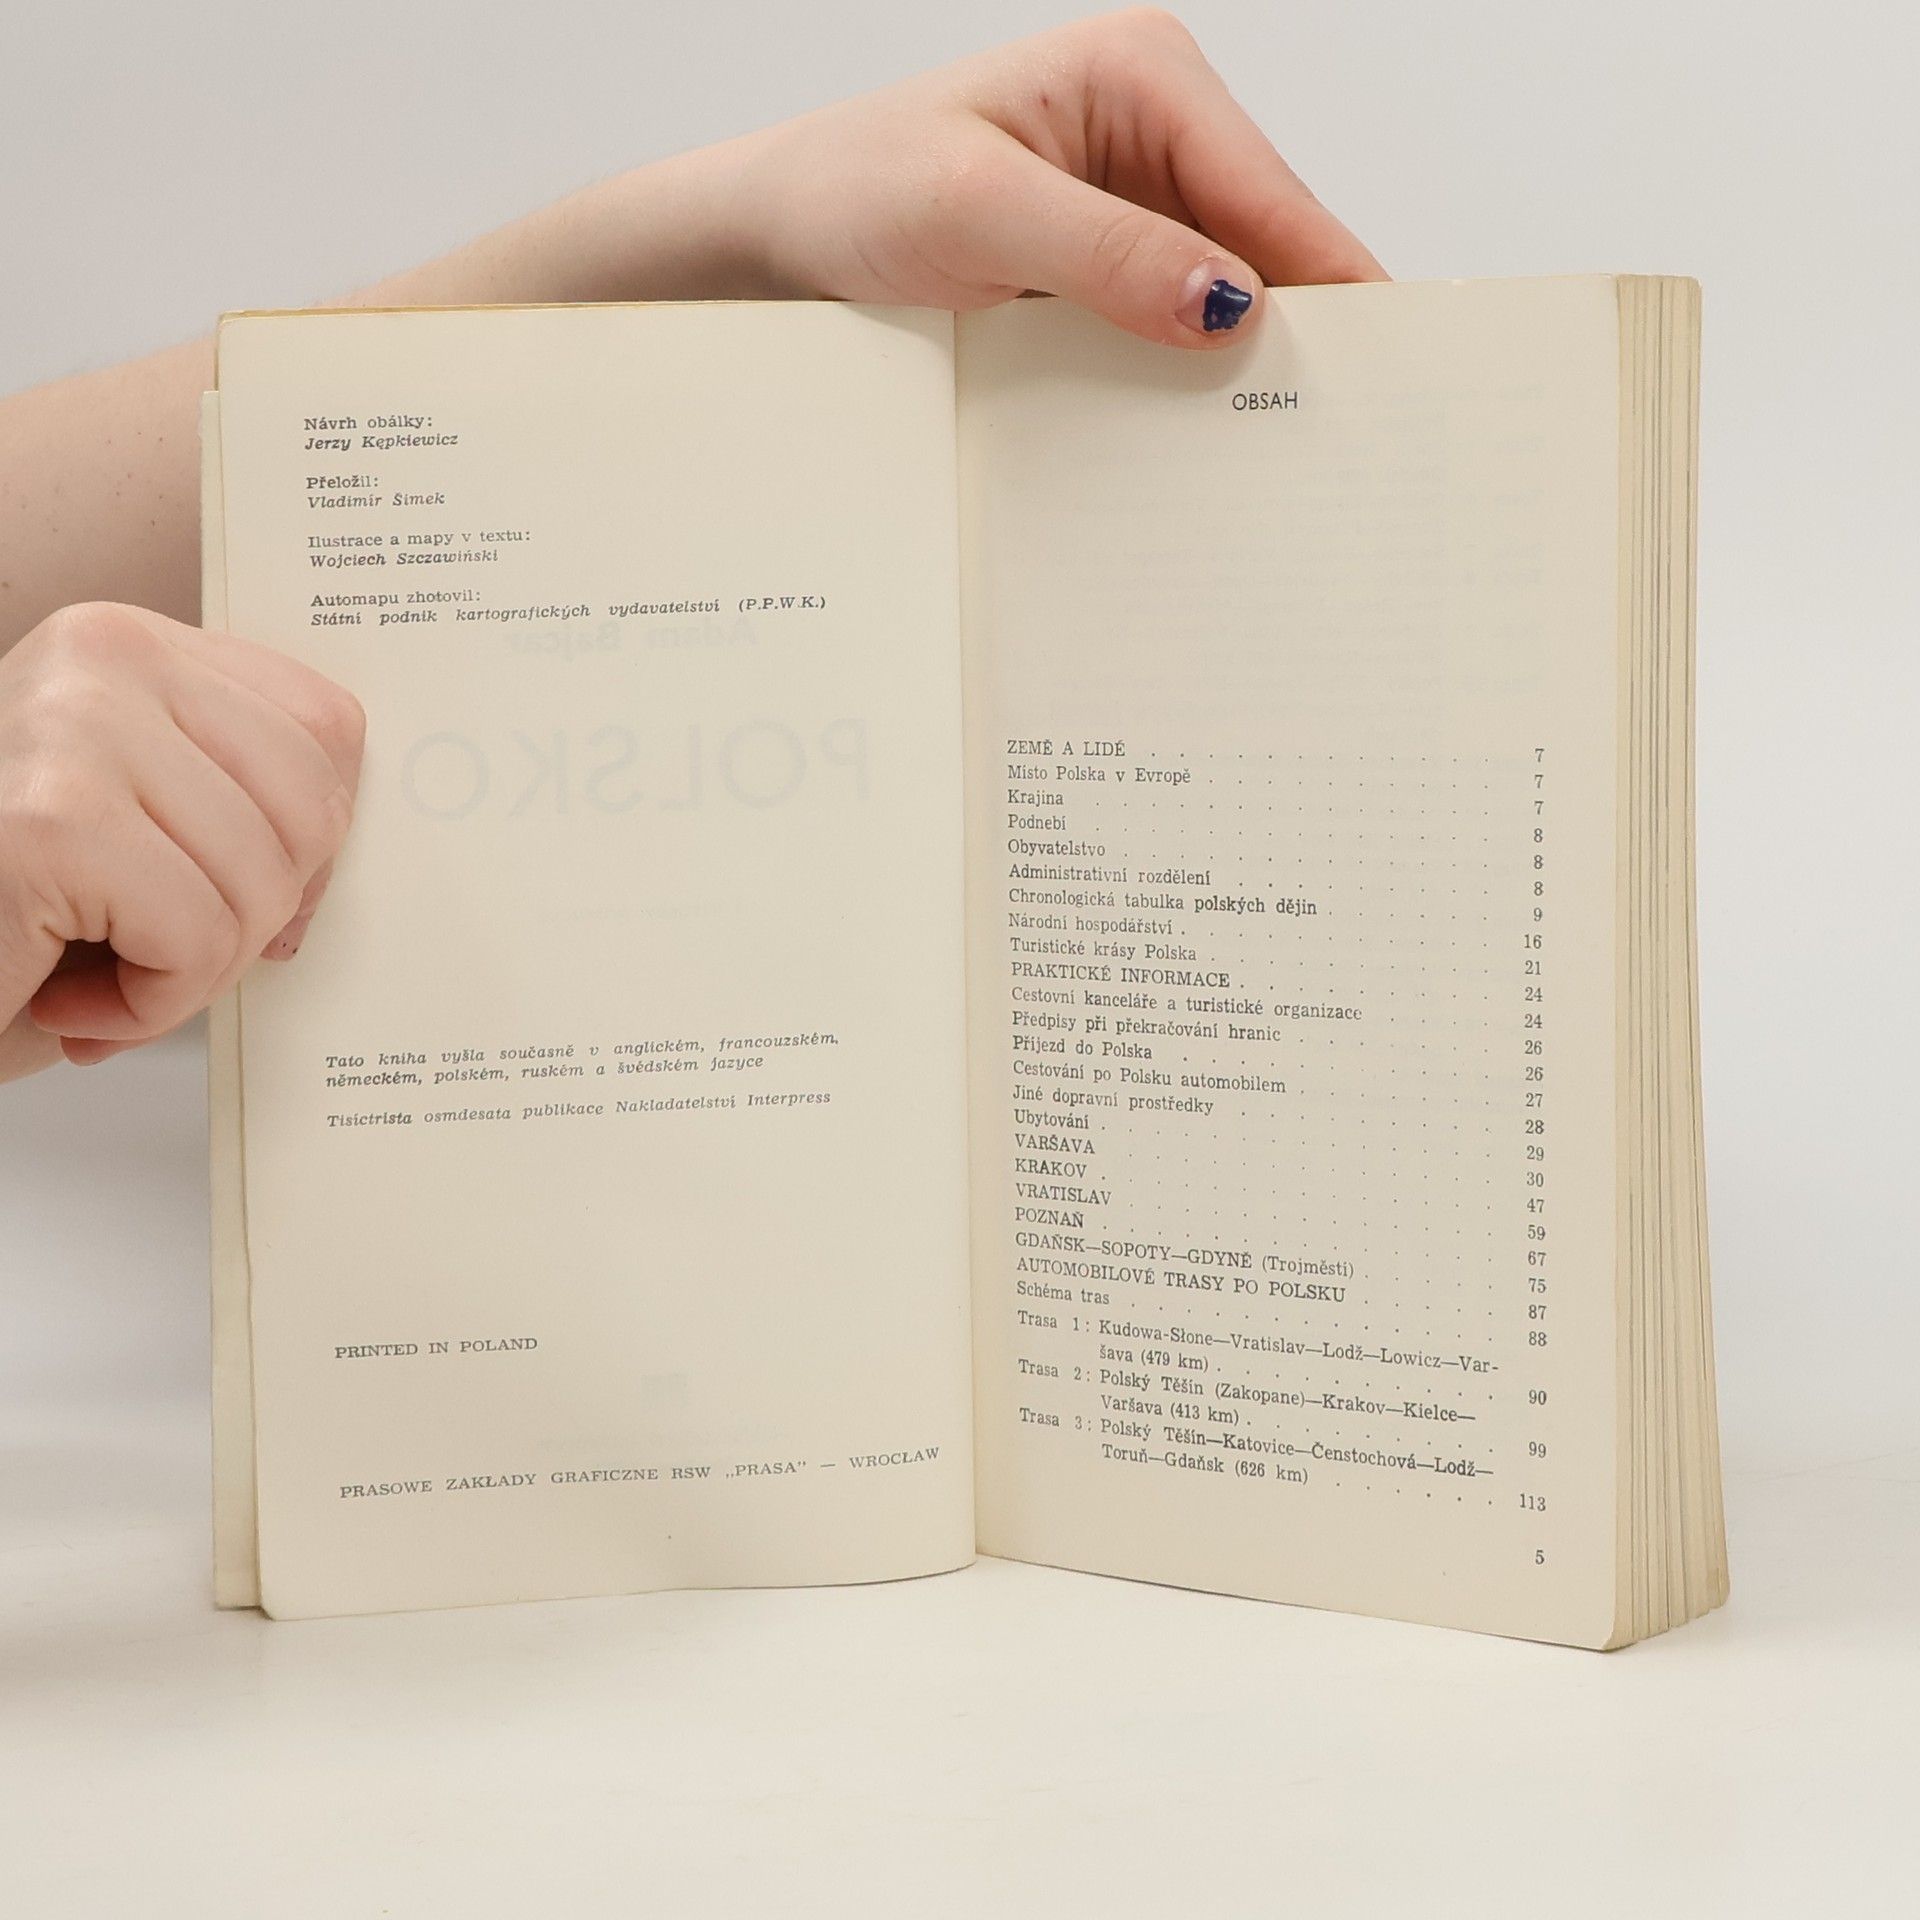 Návrh obálky:
Jerzy Kępkiewicz
Přeložil:
Vladimír Šimek
Ilustrace a mapy v textu:
Wojciech Szczawiński
Automapu zhotovil:
Státní podnik kartografických vydavatelství (P.P.W.K.)
Tato kniha vyšla současně v anglickém, francouzském,
německém, polském, ruském a švédském jazyce
Tisíctrista osmdesata publikace Nakladatelství Interpress
PRINTED IN POLAND
PRASOWE ZAKŁADY GRAFICZNE RSW „PRASA” — WROCŁAW
OBSAH
ZEMĚ A LIDÉ . . . . . . . . . . . . 7
Místo Polska v Evropě . . . . . . . . . . 7
Krajina . . . . . . . . . . . . . . 7
Podnebí . . . . . . . . . . . . . . 8
Obyvatelstvo . . . . . . . . . . . . . 8
Administrativní rozdělení . . . . . . . . . 8
Chronologická tabulka polských dějin . . . . . . 9
Národní hospodářství . . . . . . . . . . . 16
Turistické krásy Polska . . . . . . . . . . 21
PRAKTICKÉ INFORMACE . . . . . . . . . 24
Cestovní kanceláře a turistické organizace . . . . 24
Předpisy při překračování hranic . . . . . . . 26
Příjezd do Polska . . . . . . . . . . . 26
Cestování po Polsku automobilem . . . . . . . 27
Jiné dopravní prostředky . . . . . . . . . 28
Ubytování . . . . . . . . . . . . . . 29
VARŠAVA . . . . . . . . . . . . . 30
KRAKOV . . . . . . . . . . . . . . 47
VRATISLAV . . . . . . . . . . . . . 59
POZNAŇ . . . . . . . . . . . . . . 67
GDAŇSK—SOPOTY—GDYNĚ (Trojměstí) . . . . . 75
AUTOMOBILOVÉ TRASY PO POLSKU . . . . . 87
Schéma tras . . . . . . . . . . . . . 88
Trasa 1: Kudowa-Słone—Vratislav—Lodž—Lowicz—Var-
šava (479 km) . . . . . . . . . . 90
Trasa 2: Polský Těšín (Zakopane)—Krakov—Kielce—
Varšava (413 km) . . . . . . . . . 99
Trasa 3: Polský Těšín—Katovice—Čenstochová—Lodž—
Toruň—Gdaňsk (626 km) . . . . . . 113
5